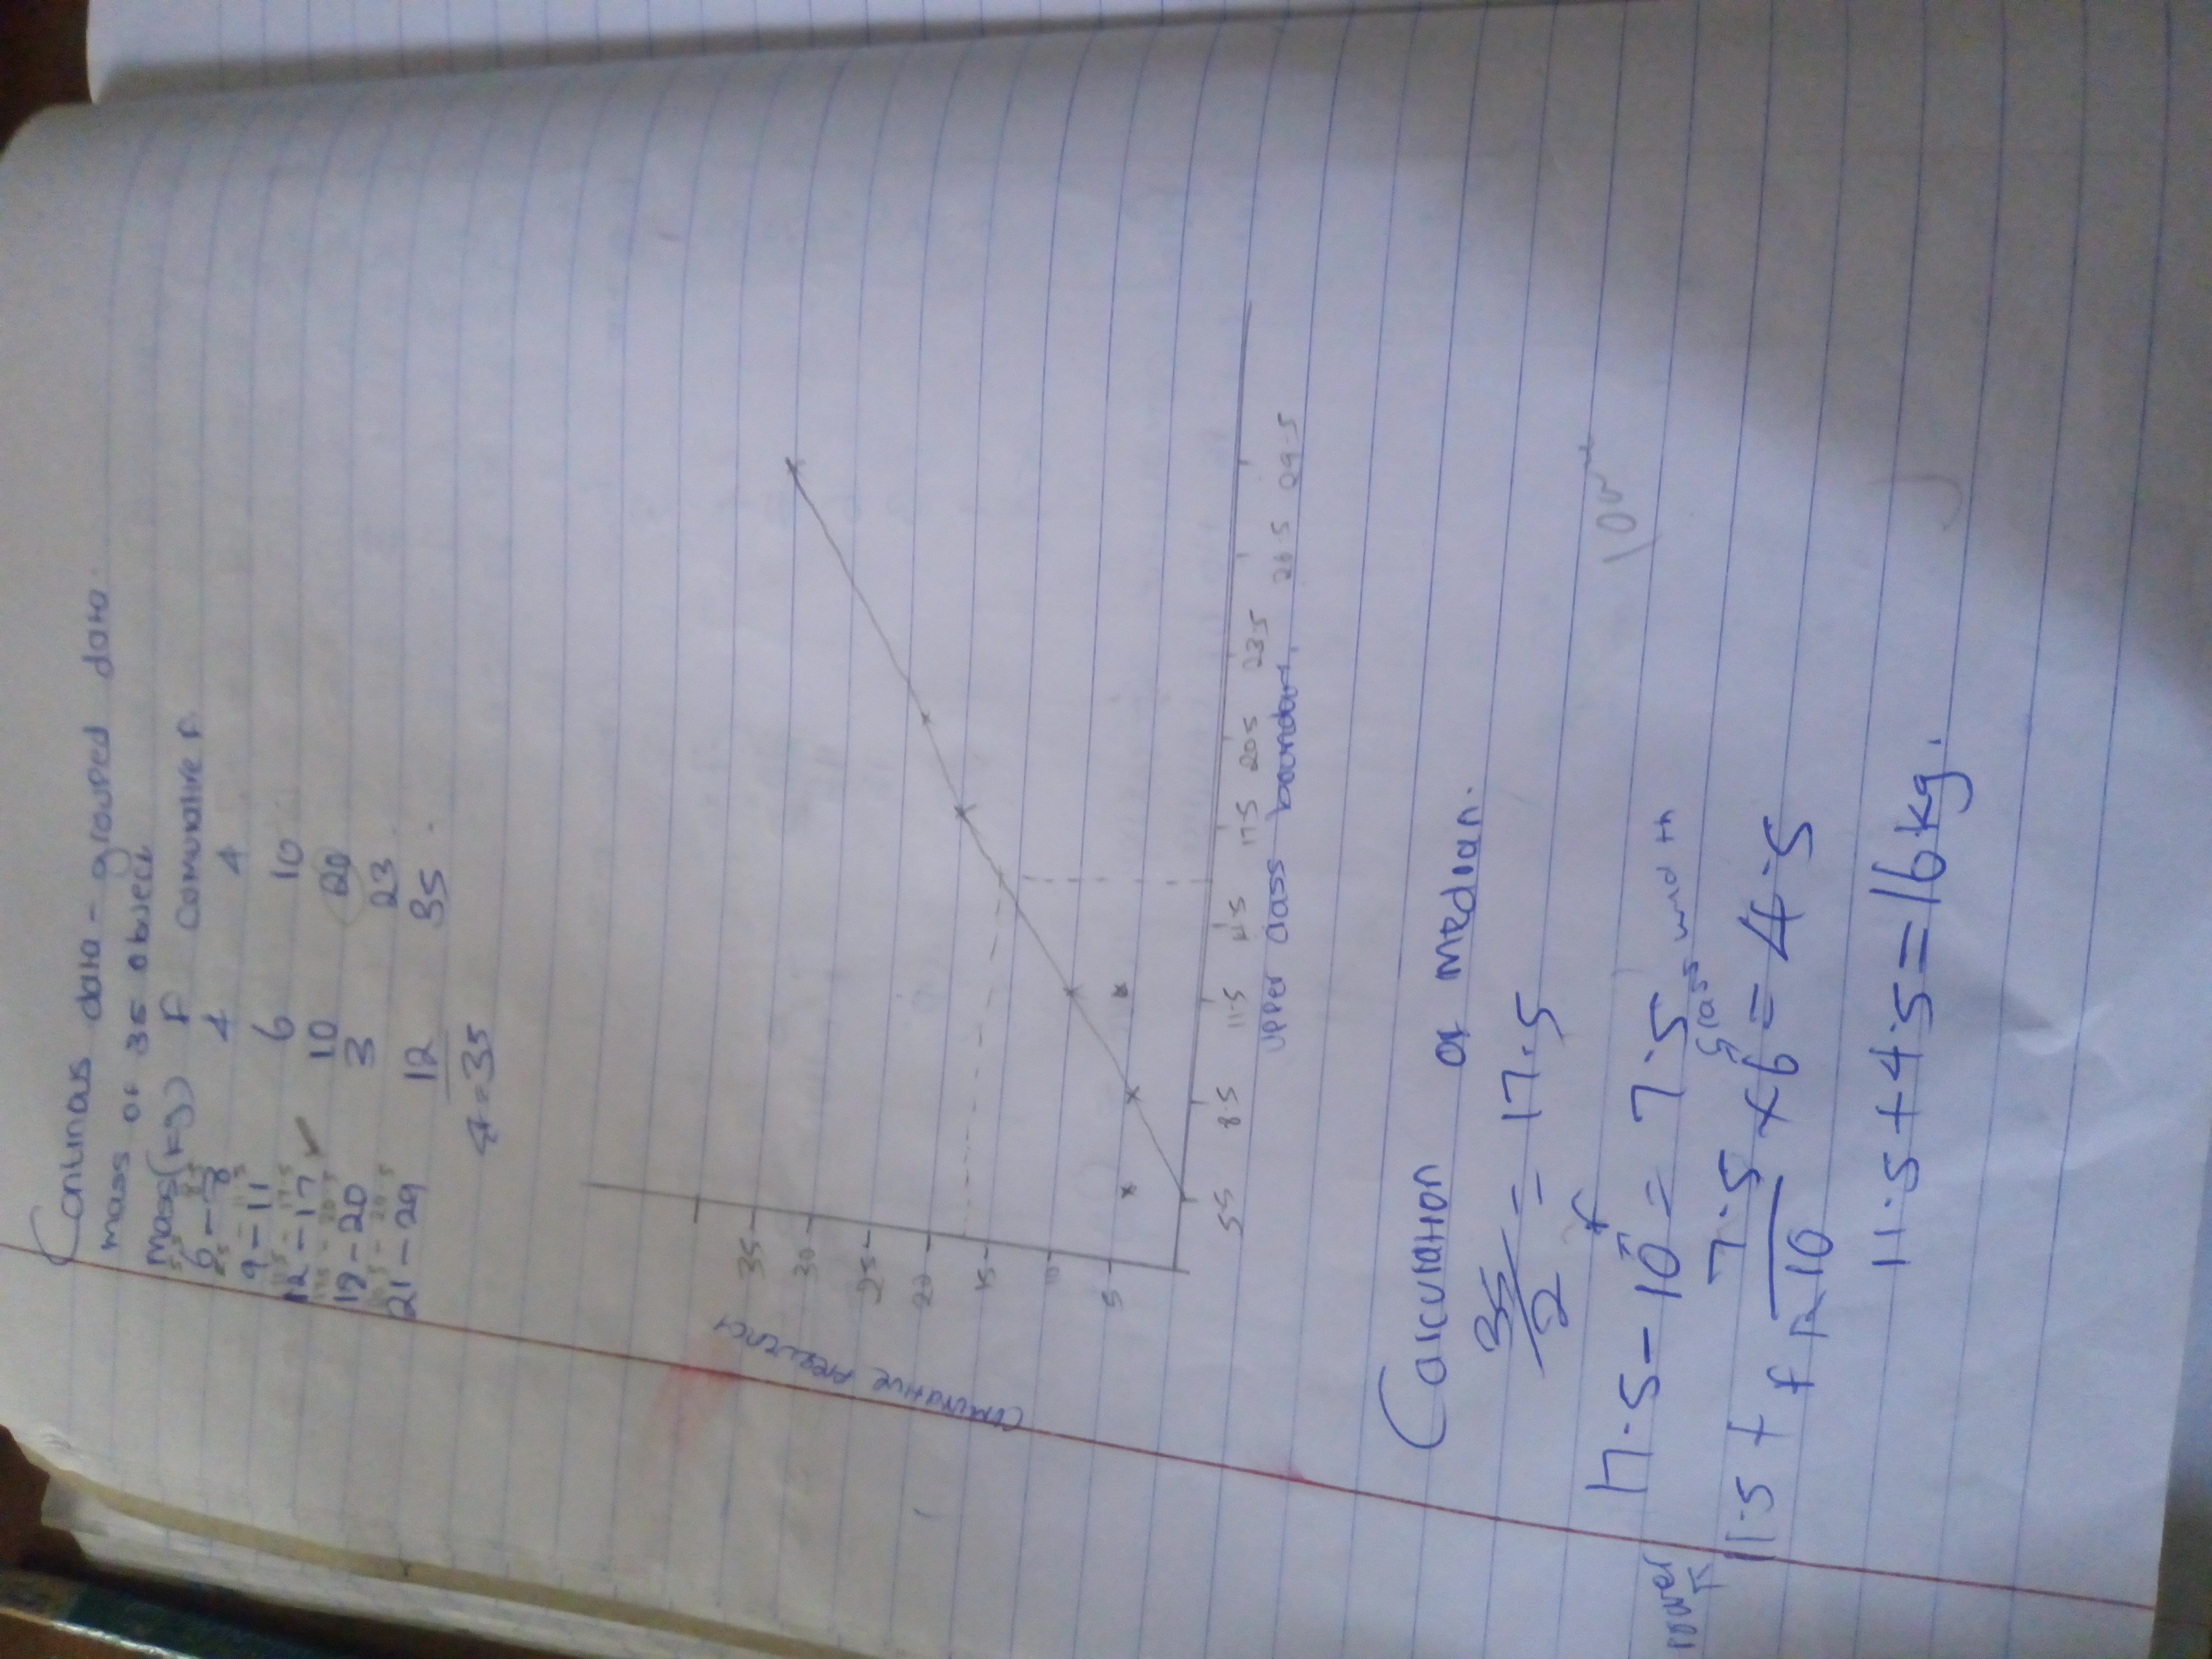 Continous data - grouped data.
mass of 35 object
mass(kg) F Comurative F.
6 - 8 4 4
9 - 11 6 10
12 - 17 ✓ 10 20
17.5 - 20.5
18 - 20 3 23
20.5 - 29.5
21 - 29 12 35
= 35
Comurative Frequency
35
30
25
20
15
10
5
5.5 8.5 11.5 14.5 17.5 20.5 23.5 26.5 29.5
upper class boundary.
Calculation of median.
35/2 = 17.5
F
17.5 - 10 = 7.5
lower
class width
11.5 + 7.5/10 × 6 = 4.5
F
11.5 + 4.5 = 16kg.